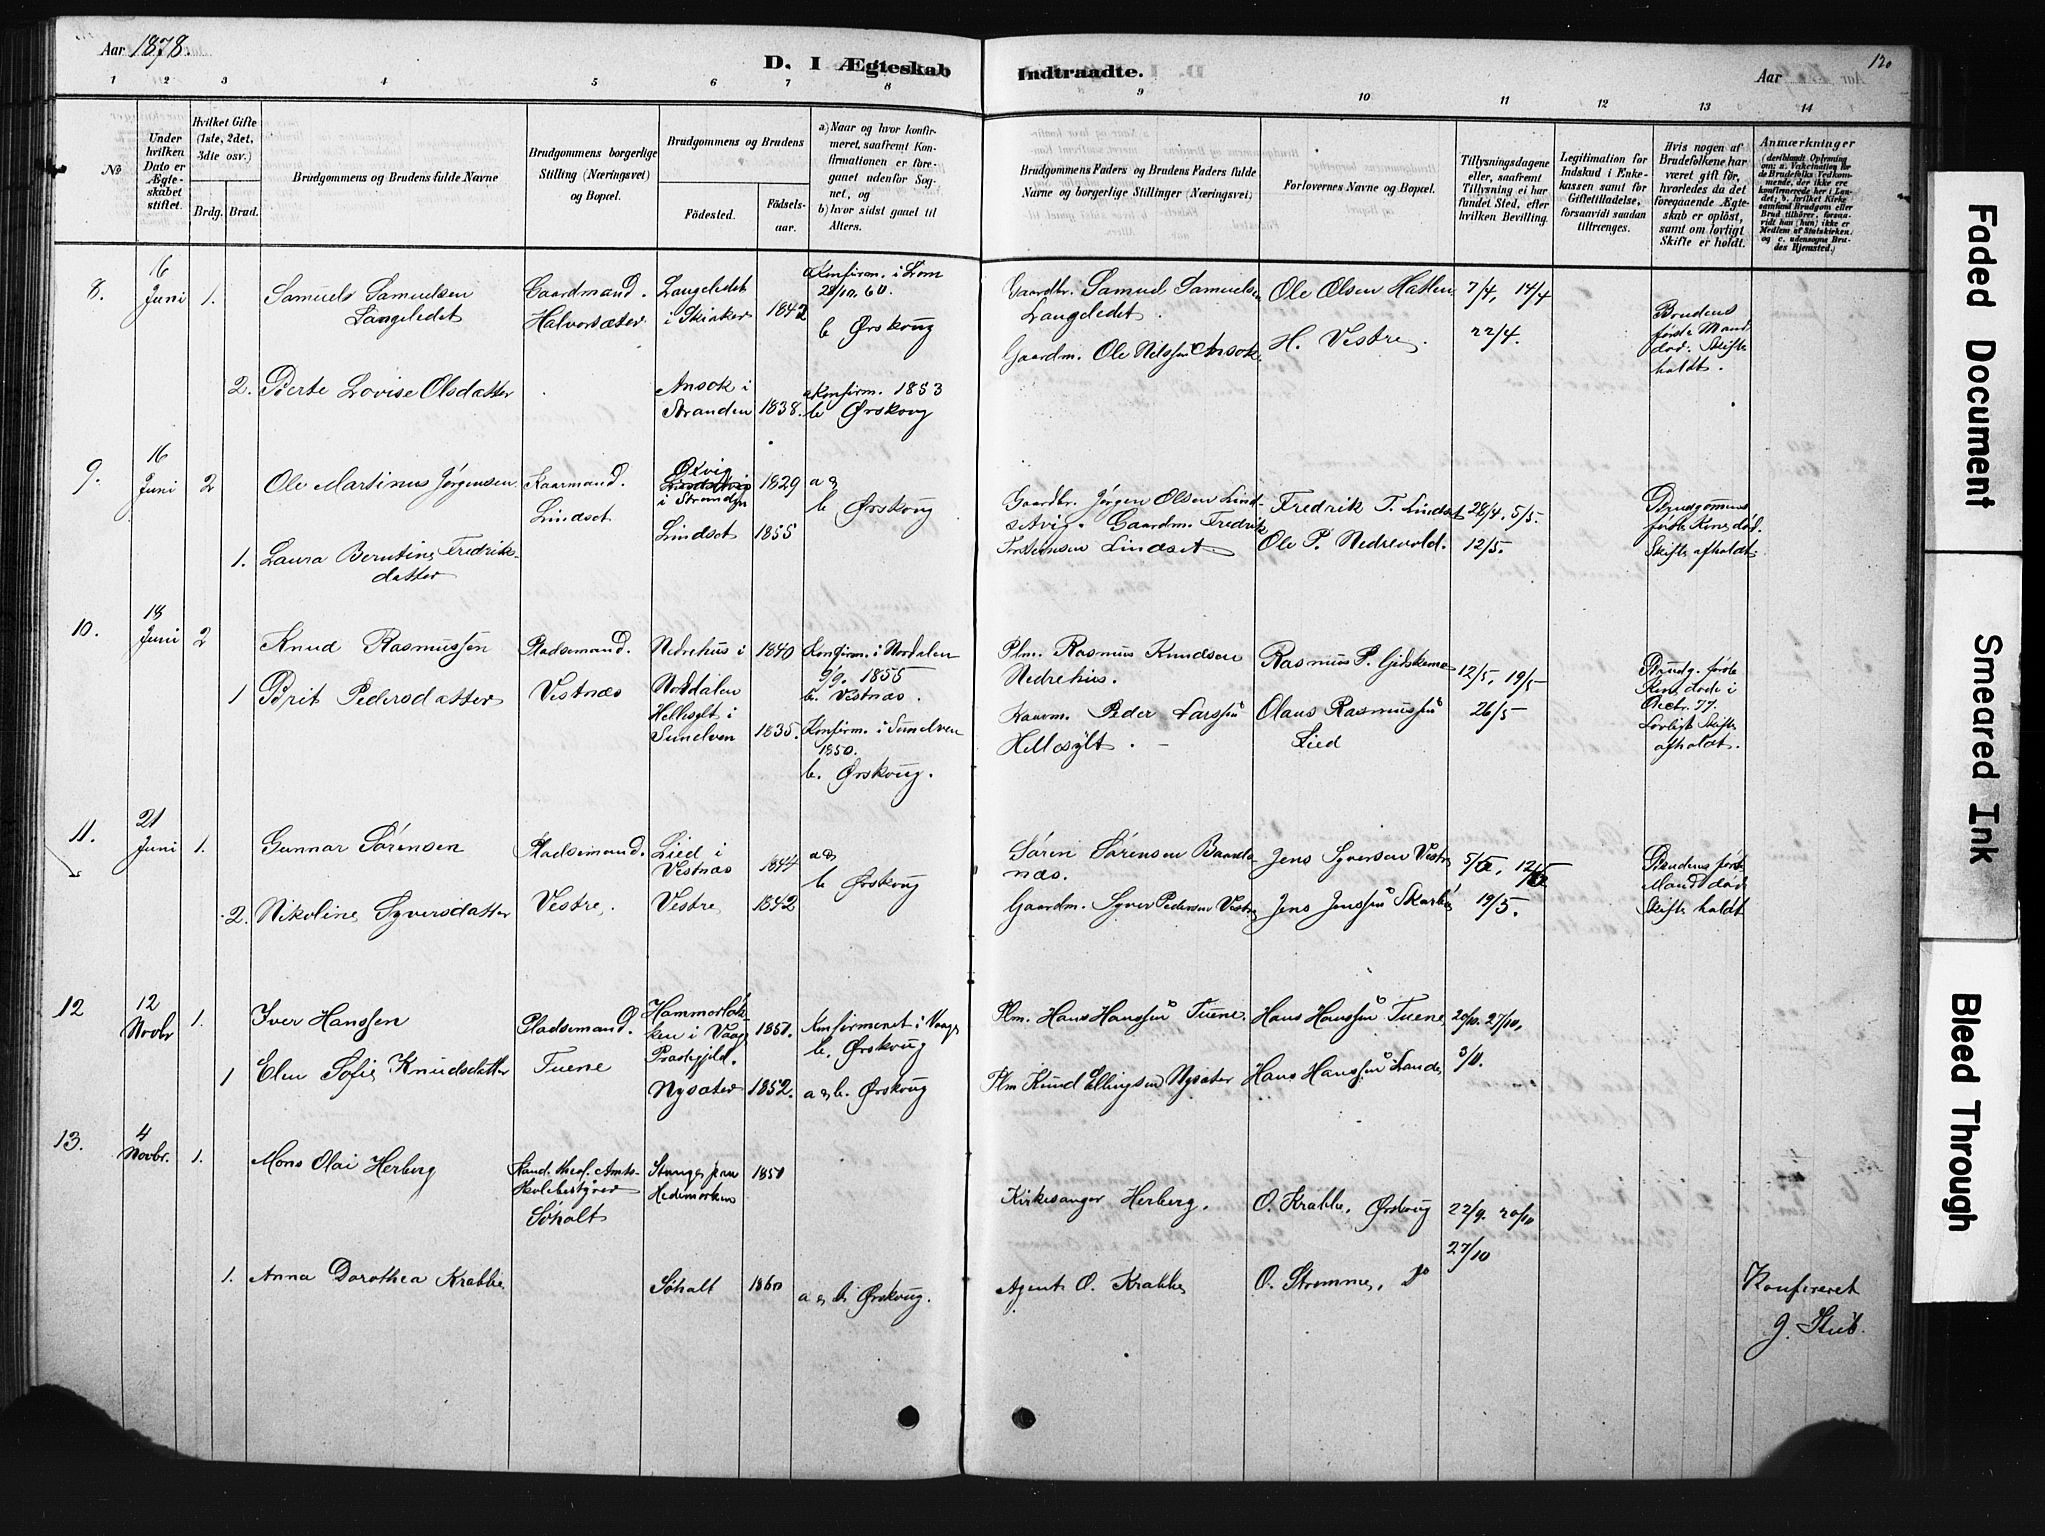 Aar 1878.
D. I Ægteskab Indtraadte.
Aar
120
1 2 3 4 5 6 7 8 9 10 11 12 13 14
No
Under hvilken Dato er Ægteskabet stiftet.
Hvilket Gifte (1ste, 2det, 3die osv.)
Brdg. Brud.
Brudgommens og Brudens fulde Navne
Brudgommens borgerlige Stilling (Næringsvei) og Bopæl.
Brudgommens og Brudens
Fødested.
Fødselsaar.
a) Naar og hvor konfirmeret, saafremt Konfirmationen er foregaaet udenfor Sognet, og
b) hvor sidst gaaet til Alters.
Brudgommens Faders og Brudens Faders fulde Navne og borgerlige Stillinger (Næringsvei)
Forlovernes Navne og Bopæl.
Tillysningsdagene eller, saafremt Tillysning ei har fundet Sted, efter hvilken Bevilling.
Legitimation for Indskud i Enkekassen samt for Giftetilladelse, forsaavidt saadan tiltrænges.
Hvis nogen af Brudefolkene har været gift før, hvorledes da det foregaaende Ægteskab er opløst, samt om lovligt Skifte er holdt.
Anmærkninger
(deriblandt Oplysning om: a. Vaksination for de Brudefolks Vedkommende, der ikke ere konfirmerede her i Landet; b. hvilket Kirkesamfund Brudgom eller Brud tilhører, forsaavidt han (hun) ikke er Medlem af Statskirken, og c. udensogns Brudes Hjemsted.)
8. 6 Juni 1. Samuels Samuelsen Langledet
Gaardmand. Halvorsæter
Langledet i Skiaker 1842
a Konfirm. i Lom 28/10. 60.
b Ørskoug
Gaardbr. Samuel Samuelsen Langledet.
Gaardm. Ole Nilssen Ansok
Ole Olsen Hatlen
H. Vestre.
7/4, 14/4
22/4.
Brudens første Mand død. Skifte holdt.
2. Berte Lovise Olsdatter
Ansok i Stranden 1838.
a Konfirm. 1853
b Ørskoug
9. 16 Juni 2 Ole Martinus Jørgensen
Kaarmand. Lindset
i Stranden 1829
a &
b Ørskoug
Gaardbr. Jørgen Olsen Lindsetvig. Gaardm. Fredrik
Lindset
Fredrik T. Lindset
Ole P. Nedrevold.
28/4, 5/5.
12/5.
Brudgommens første Kone død. Skifte afholdt.
1. Laura Berntine Fredriksdatter
Lindset 1855
10. 18 Juni 2 Knud Rasmussen
Pladsemand. Vestnæs
Nedrehus i Norddalen 1840
Konfirm. i Nordalen 9/9. 1855
b. Vestnæs.
Plm. Rasmus Knudsen Nedrehus.
Rasmus P. Gjdskemo
12/5, 19/5
26/5
Brudg. første Kone døde i Octbr. 77. Lovligt Skifte afholdt.
1 Brit Pedersdatter
Hellesylt i Sunelven 1835.
Konfirm. i Sunelven 1850.
b. Ørskoug.
Kaarm. Peder Larssen Hellesylt.
Olaus Rasmussen Lied
11. 21 Juni 1. Gunnar Sørensen
Pladsemand. Vestre.
Lied i Vestnæs 1844
a &
b Ørskoug
Søren Sørensen
Jens Syversen Vestre
5/5, 12/5
19/5.
Brudens første Mand død Skifte holdt
2. Nikoline Syversdatter
Vestre 1842
Gaardm. Syver Pedersen Vestre
Jens Jenssen Skarbø
12 12 Novbr 1. Iver Hanssen
Pladsemand. Tuene
Hammerløkken i Vaage Præstegjeld. 1851.
Konfirmeret i Vaage
b. Ørskoug
Plm. Hans Hanssen Tuene.
Hans Hanssen Tuene
20/10. 27/10.
3/11.
1 Elen Sofie Knudsdatter
Nysæter 1852.
a & b. Ørskoug
Plm Knud Ellingsen Nysæter
Hans Hanssen Lande
13. 4 Novbr. 1. Mons Olai Herberg
Kand. theol. Amtsskolebestyrer Søholt
Stange paa Hedemarken 1851
Kirkesanger Herberg.
O. Krabbe, Ørskoug
22/9. 20/10
27/10
1. Anna Dorothea Krabbe
Søholt 1860
a & b. Ørskoug.
Agent O. Krabbe
O. Strømme, Do
Konfereret
J. Stub.
Faded Document
Smeared Ink
Bleed Through